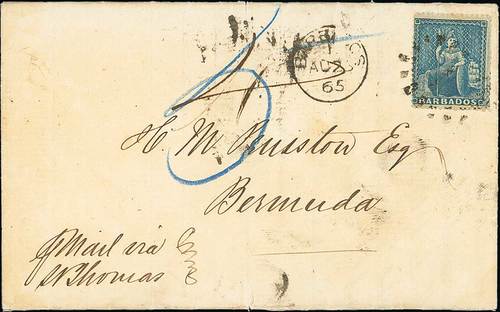 BARBADOS
AU
65
BARBADOS
H. M.
Esq
Bermuda
p Mail via
St Thomas